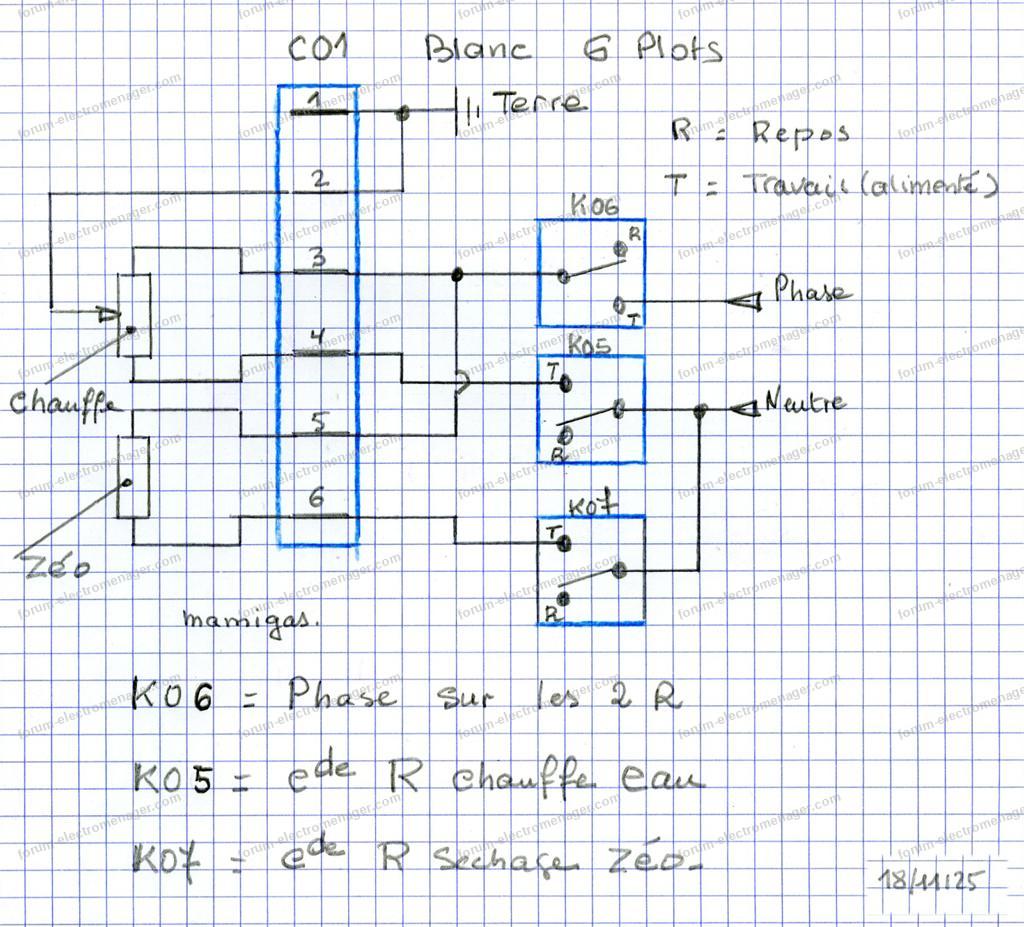 C01 Blanc 6 Plots
1
Terre
R = Repos
2
T = Travail (alimenté)
K06
R
3
Phase
T
4
K05
T
Chauffe
Neutre
5
R
6
K07
T
Zéo
R
mamigas.
K06 = Phase sur les 2 R
K05 = cde R chauffe eau
K07 = cde R Sechage Zéo.
18/11:25
forum-electromenager.com